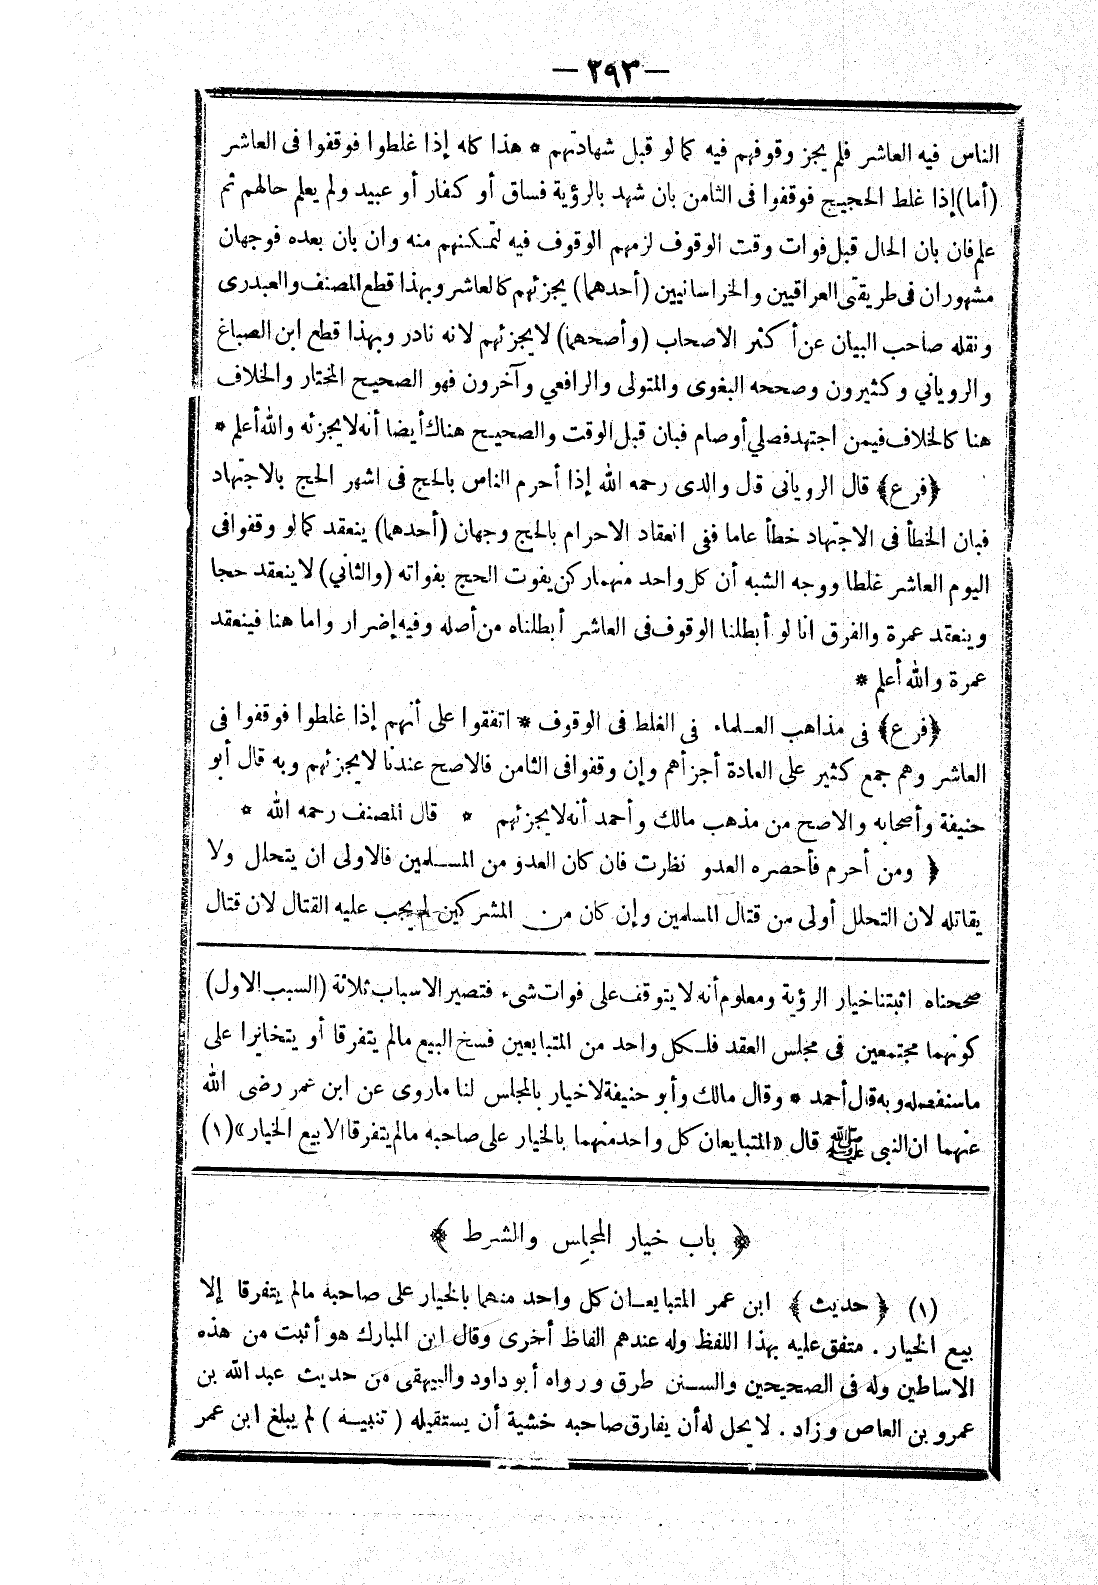 — ٢٩٣ —
الناس فيه العاشر فلم يجز وقوفهم فيه كما لو قبل شهادتهم * هذا كله إذا غلطوا فوقفوا فى العاشر
(أما) إذا غلط الحجيج فوقفوا فى الثامن بان شهد بالرؤية فساق أو كفار أو عبيد ولم يعلم حالهم ثم
علم فان بان الحال قبل فوات وقت الوقوف لزمهم الوقوف فيه لتمكنهم منه وان بان بعده فوجهان
مشهوران فى طريقتى العراقيين والخراسانيين (أحدهما) يجزئهم كالعاشر وبهذا قطع المصنف والعبدرى
ونقله صاحب البيان عن أكثر الاصحاب (وأصحهما) لا يجزئهم لانه نادر وبهذا قطع ابن الصباغ
والروياني وكثيرون وصححه البغوى والمتولى والرافعي وآخرون فهو الصحيح المختار والخلاف
هنا كالخلاف فيمن اجتهد فصلي أو صام فبان قبل الوقت والصحيح هناك أيضا أنه لا يجزئه والله أعلم *
﴿فرع﴾ قال الرويانى قال والدى رحمه الله إذا أحرم الناس بالحج فى اشهر الحج بالاجتهاد
فبان الخطأ فى الاجتهاد خطأ عاما ففى انعقاد الاحرام بالحج وجهان (أحدهما) ينعقد كما لو وقفوا فى
اليوم العاشر غلطا ووجه الشبه أن كل واحد منهما ركن يفوت الحج بفواته (والثاني) لا ينعقد حجا
وينعقد عمرة والفرق انا لو أبطلنا الوقوف فى العاشر أبطلناه من أصله وفيه إضرار واما هنا فينعقد
عمرة والله أعلم *
﴿فرع﴾ فى مذاهب العـلماء فى الغلط فى الوقوف * اتفقوا على أنهم إذا غلطوا فوقفوا فى
العاشر وهم جمع كثير على العادة أجزأهم وإن وقفوا فى الثامن فالاصح عندنا لا يجزئهم وبه قال أبو
حنيفة وأصحابه والاصح من مذهب مالك وأحمد أنه لا يجزئهم * قال المصنف رحمه الله *
﴿ ومن أحرم فأحصره العدو نظرت فان كان العدو من المسـلمين فالاولى ان يتحلل ولا
يقاتله لان التحلل أولى من قتال المسلمين وإن كان من المشركين لم يجب عليه القتال لان قتال
صححناه اثبتنا خيار الرؤية ومعلوم أنه لا يتوقف على فوات شىء فتصير الاسباب ثلاثة (السبب الاول)
كونهما مجتمعين فى مجلس العقد فلـكل واحد من المتبايعين فسخ البيع مالم يتفرقا أو يتخايرا على
ماسنفصله وبه قال أحمد * وقال مالك وأبو حنيفة لا خيار بالمجلس لنا ماروى عن ابن عمر رضى الله
عنهما ان النبى ﷺ قال «المتبايعان كل واحد منهما بالخيار على صاحبه مالم يتفرقا الا بيع الخيار» (١)
﴿ باب خيار المجلس والشرط ﴾
(١) ﴿ حديث ﴾ ابن عمر المتبايعـان كل واحد منهما بالخيار على صاحبه مالم يتفرقا إلا
بيع الخيار . متفق عليه بهذا اللفظ وله عندهم الفاظ أخرى وقال ابن المبارك هو أثبت من هذه
الاساطين وله فى الصحيحين والسـنن طرق ورواه أبو داود والبيهقى من حديث عبد الله بن
عمرو بن العاص وزاد . لا يحل له أن يفارق صاحبه خشية أن يستقيله ( تنبيـه ) لم يبلغ ابن عمر